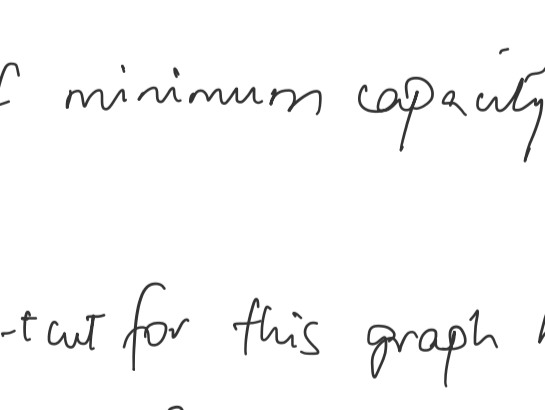 minimum capacity
-t cut for this graph